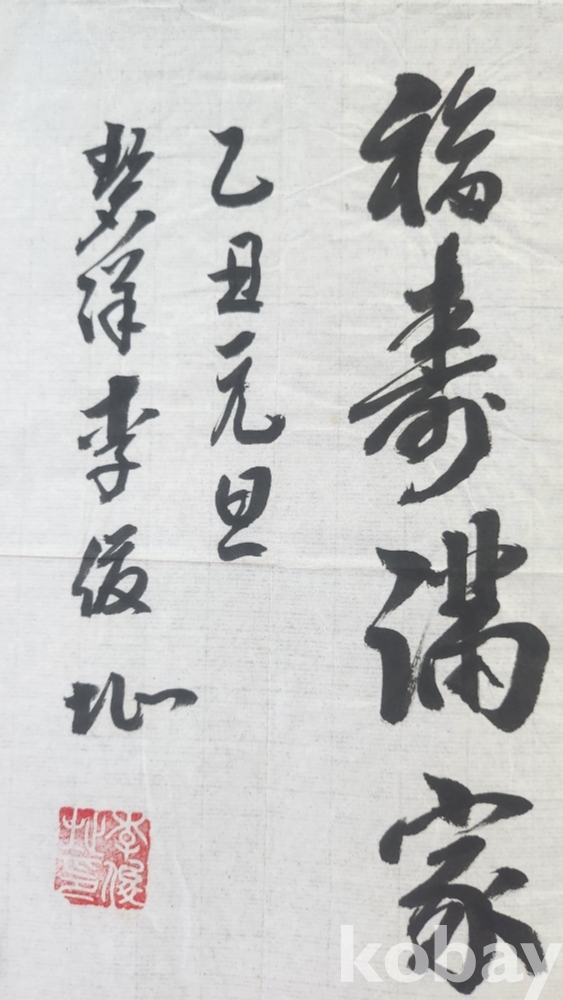 福壽滿家
乙丑元旦
碧洋李俊址
李俊
址印
kobay